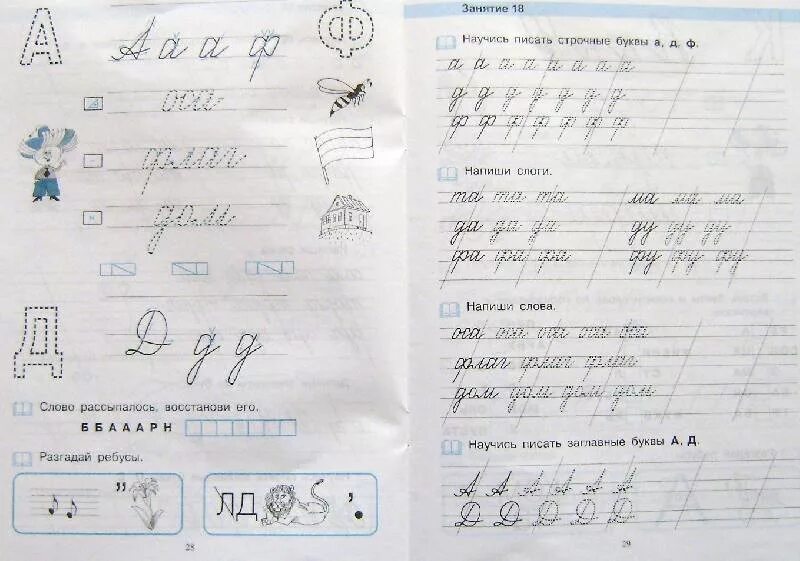 А
А а а ф
Ф
оса
флаг
дом
Д
Д д д
Слово рассыпалось, восстанови его.
ББАААРН
Разгадай ребусы.
”
ЛД
’
28
Занятие 18
Научись писать строчные буквы а, д, ф.
а а а а а а а а
д д д д д д д
ф ф ф ф ф ф ф
Напиши слоги.
та та та ма ма ма
да да да ду ду ду
фа фа фа фу фу фу
Напиши слова.
оса оса оса оса оса
флаг флаг флаг
дом дом дом дом
Научись писать заглавные буквы А, Д.
А А А А А
Д Д Д Д Д
29